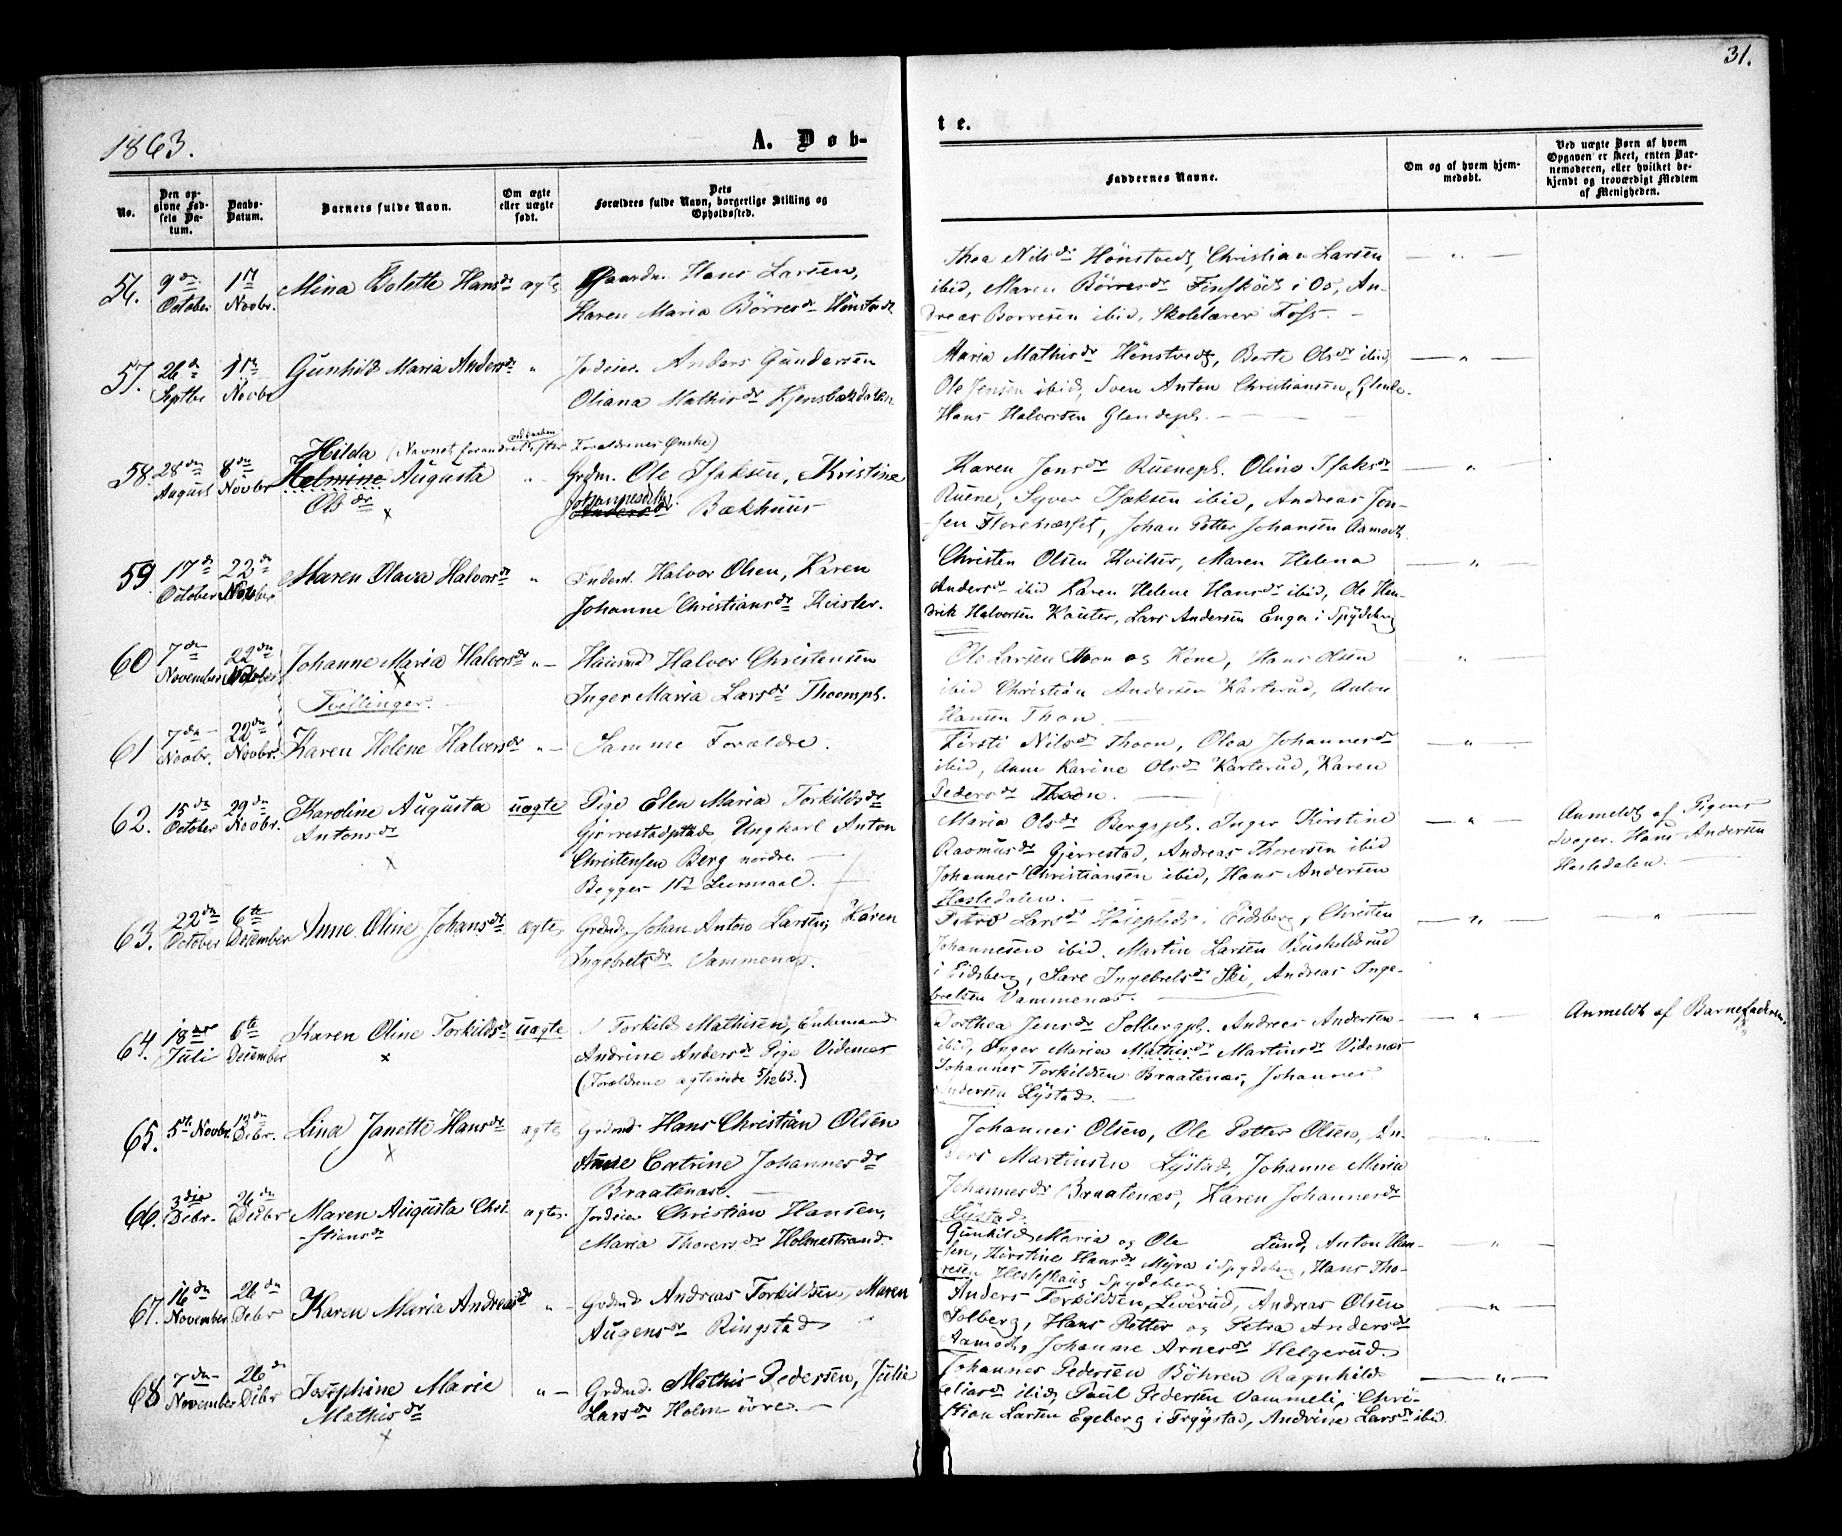 31.
1863.
A. Døb-
te.
No.
Den op-
givne Fød-
sels Da-
tum.
Daabs-
Datum.
Barnets fulde Navn.
Om ægte
eller uægte
født.
Dets
Forældres fulde Navn, borgerlige Stilling og
Opholdssted.
Faddernes Navne.
Om og af hvem hjem-
medøbt.
Ved uægte Børn af hvem
Opgaven er skeet, enten Bar-
nemoderen, eller hvilket be-
kjendt og troværdigt Medlem
af Menigheden.
56. 9de October 1ste Novbr. Mina Bolette Hansdr ægte
Gaardm. Hans Larsen,
Karen Maria Börresdr Hönstvedt
Thea Nilsdr Hönstvedt, Christian Larsen
ibid, Maren Börresdr Finsköds i Os, An-
dreas Borresen ibid, Skolelærer Foss.
57. 26de Septbr 1ste Novbr Gunhild Maria Andersdr "
Jordeier. Anders Gundersen
Oliana Mathisdr Kjensbækdalen
Maria Mathisdr Hönstvedt, Berte Olsdr ibid,
Ole Jensen ibid, Sven Anton Christiansen, Glende.
Hans Halvorsen Glendepl.
Hilda (Navnet forandret efter Forældrenes Ønske)
58. 28de August 8de Novbr Helmine Augusta "
Olsdr
x
Grdm. Ole Isaksen, Kristine
Johannesdtr
Andersdr Bækhuus
Karen Jonsdr Ruenepl. Oline Isaksdr
Ruene, Syver Isaksen ibid, Andreas Jen-
sen Florenæsset, Johan Petter Johansen Aamodt.
59 17de October 22de November Maren Olava Halvorsdr "
Inderst. Halvor Olsen, Karen
Johanne Christiansdr Kvister.
Christen Olsen Kvister, Maren Helena
Andersdr ibid Karen Helene Hansdr ibid, Ole Hen-
drik Halvorsen Kauter, Lars Andersen Enger i Spydeberg
60 7de November 22de November Johanne Maria Halvorsdr "
x
Tvillinger.
Huusmd Halvor Christensen
Inger Maria Larsdr Thoonpl.
Ole Larsen Thoon og Kone, Hans Olsen
ibid Christian Andersen Karterud, Anton
Hansen Thon
61 7de Novbr. 22de Novbr. Karen Helene Halvorsdr "
Samme Forældre.
Kirsti Nilsdr Thoon, Olea Johannesdr
ibid, Anne Karine Olsdr Karterud, Karen
Pedersdr Thoon.
62. 15de October 29de Novbr. Karoline Augusta uægte
Antonsdr
x
Pige Elen Maria Torkildsdr
Gjerrestadpltads Ungkarl Anton
Christensen Berg nordre.
Begges 1ste Leiermaal.
Maria Olsdr Bergspl. Inger Kirstine
Rasmusdr Gjerrestad, Andreas Thorersen ibid
Johannes Christiansen ibid, Hans Andersen
Hasledalen.
Anmeldt af Pigens
Svoger. Hans Andersen
Hasledalen.
63. 22de October 6te December Anne Oline Johansdr ægte
Grdmd. Johan Anton Larsen, Karen
Ingebretsdr Vammenæs.
Petra Larsdr Haiepleds i Eidsberg, Christen
Johannesen ibid. Martin Larsen Buskeldrud
i Eidsberg, Sare Ingebretsdr Ski, Andreas Inge-
bretsen Vammenæs.
64. 18de Juli 6te December Karen Oline Torkildsdr uægte
x
Torkild Mathisen, Enkemand
Andrine Andersdr Pige Videnæs
(Forældrene ægteviede 5/12 63.)
Dorthea Jensdr Solbergpl. Andreas Andersen
ibid, Inger Maria Mathisdr Martinsdr Videnæs
Johannes Torkildsen Braatenæs, Johannes
Andersen Lystad.
Anmeldt af Barnefaderen.
65. 5te Novbr. 13de Debr. Lina Janette Hansdr ægte
x
Grdmd Hans Christian Olsen
Anne Catrine Johannesdr
Braatenæs.
Johannes Olsen, Ole Petter Olsen, An-
ders Martinsen Lystad, Johanne Maria
Johannesdr Braatenæs, Karen Johannesdr
Lystad.
66. 3die Debr. 26de Debr Maren Augusta Chri- ægte.
-stiansdr
Jordeier Christian Hansen,
Maria Thorersdr Holmestrand.
Gunhild Maria og Ole Lund, Anton Han-
-sen, Kirstine Hansdr Myra i Spydeberg, Hans Tho-
resen Heslefshaug Spydeberg.
67. 16de November 26de Debr Karen Maria Andreasdr "
Grdmd Andreas Torkildsen, Maren
Augensdr Ringstad
Anders Torkildsen, Leverud, Andreas Olsen
Solberg, Hans Petter og Petra Andersdr
Aamodt, Johanne Arnesdr Helgerud.
68 7de November 26de Debr Josephine Marie "
Mathisdr
x
Grdmd. Mathis Pedersen, Julie
Larsdr Holm övre.
Johannes Pedersen Böhren Ragnhild
Eliasdr ibid, Paul Pedersen Vammeli, Chri-
stian Larsen Egeberg i Trygstad, Andrine Larsdr ibid.